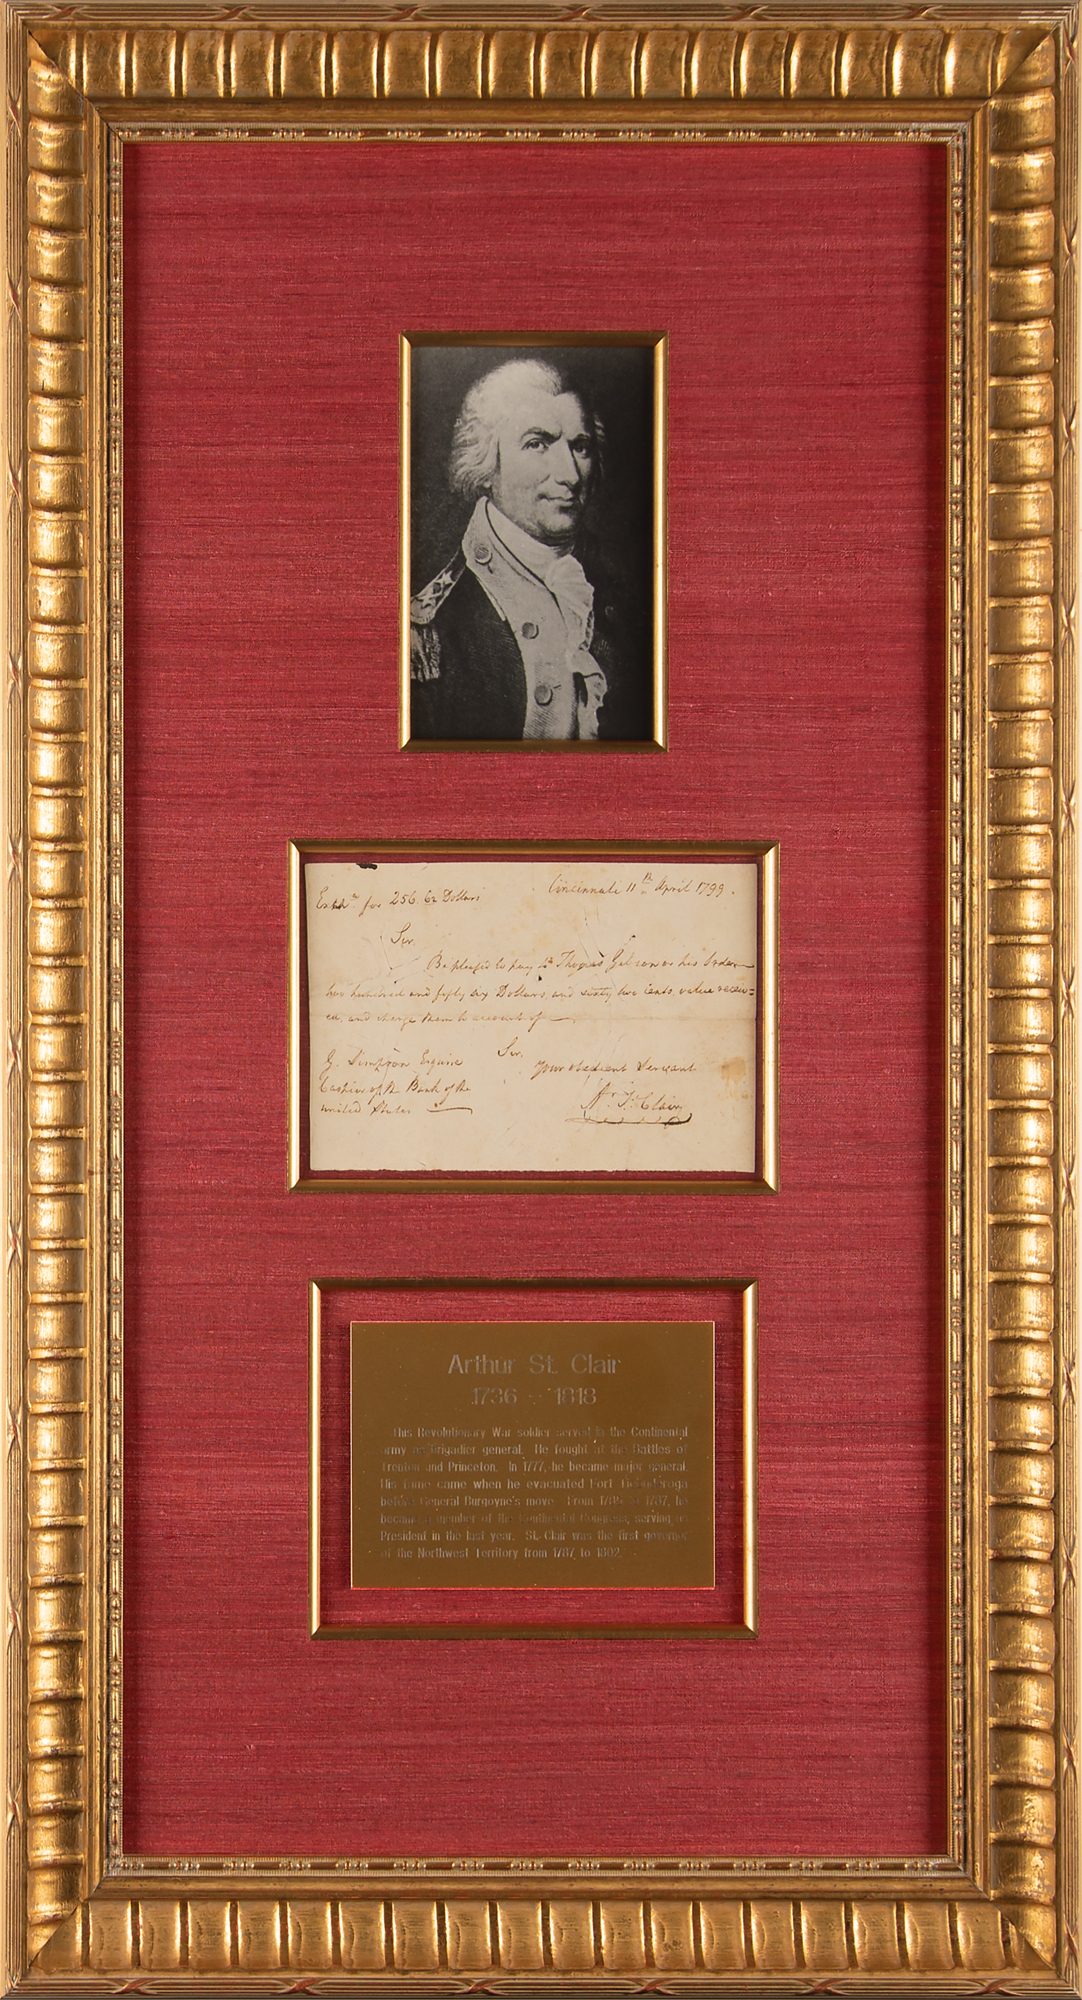 Cincinnati 11th April 1799.
for 256.62 Dollars
Sir
Be pleased to pay to Thomas Gibson or his Order
two hundred and fifty six Dollars, and sixty two cents, value receiv=
ed, and charge them to account of
Sir,
G. Simpson Esquire
Your obedient Servant
Cashier of the Bank of the
united States
Ar. St. Clair
Arthur St. Clair
1736 - 1818
This Revolutionary War soldier served in the Continental
army as Brigadier general. He fought at the Battles of
Trenton and Princeton. In 1777, he became major general.
His fame came when he evacuated Fort Ticonderoga
before General Burgoyne's move. From 1785 to 1787, he
became a member of the Continental Congress, serving as
President in the last year. St. Clair was the first governor
of the Northwest Territory from 1787 to 1802.